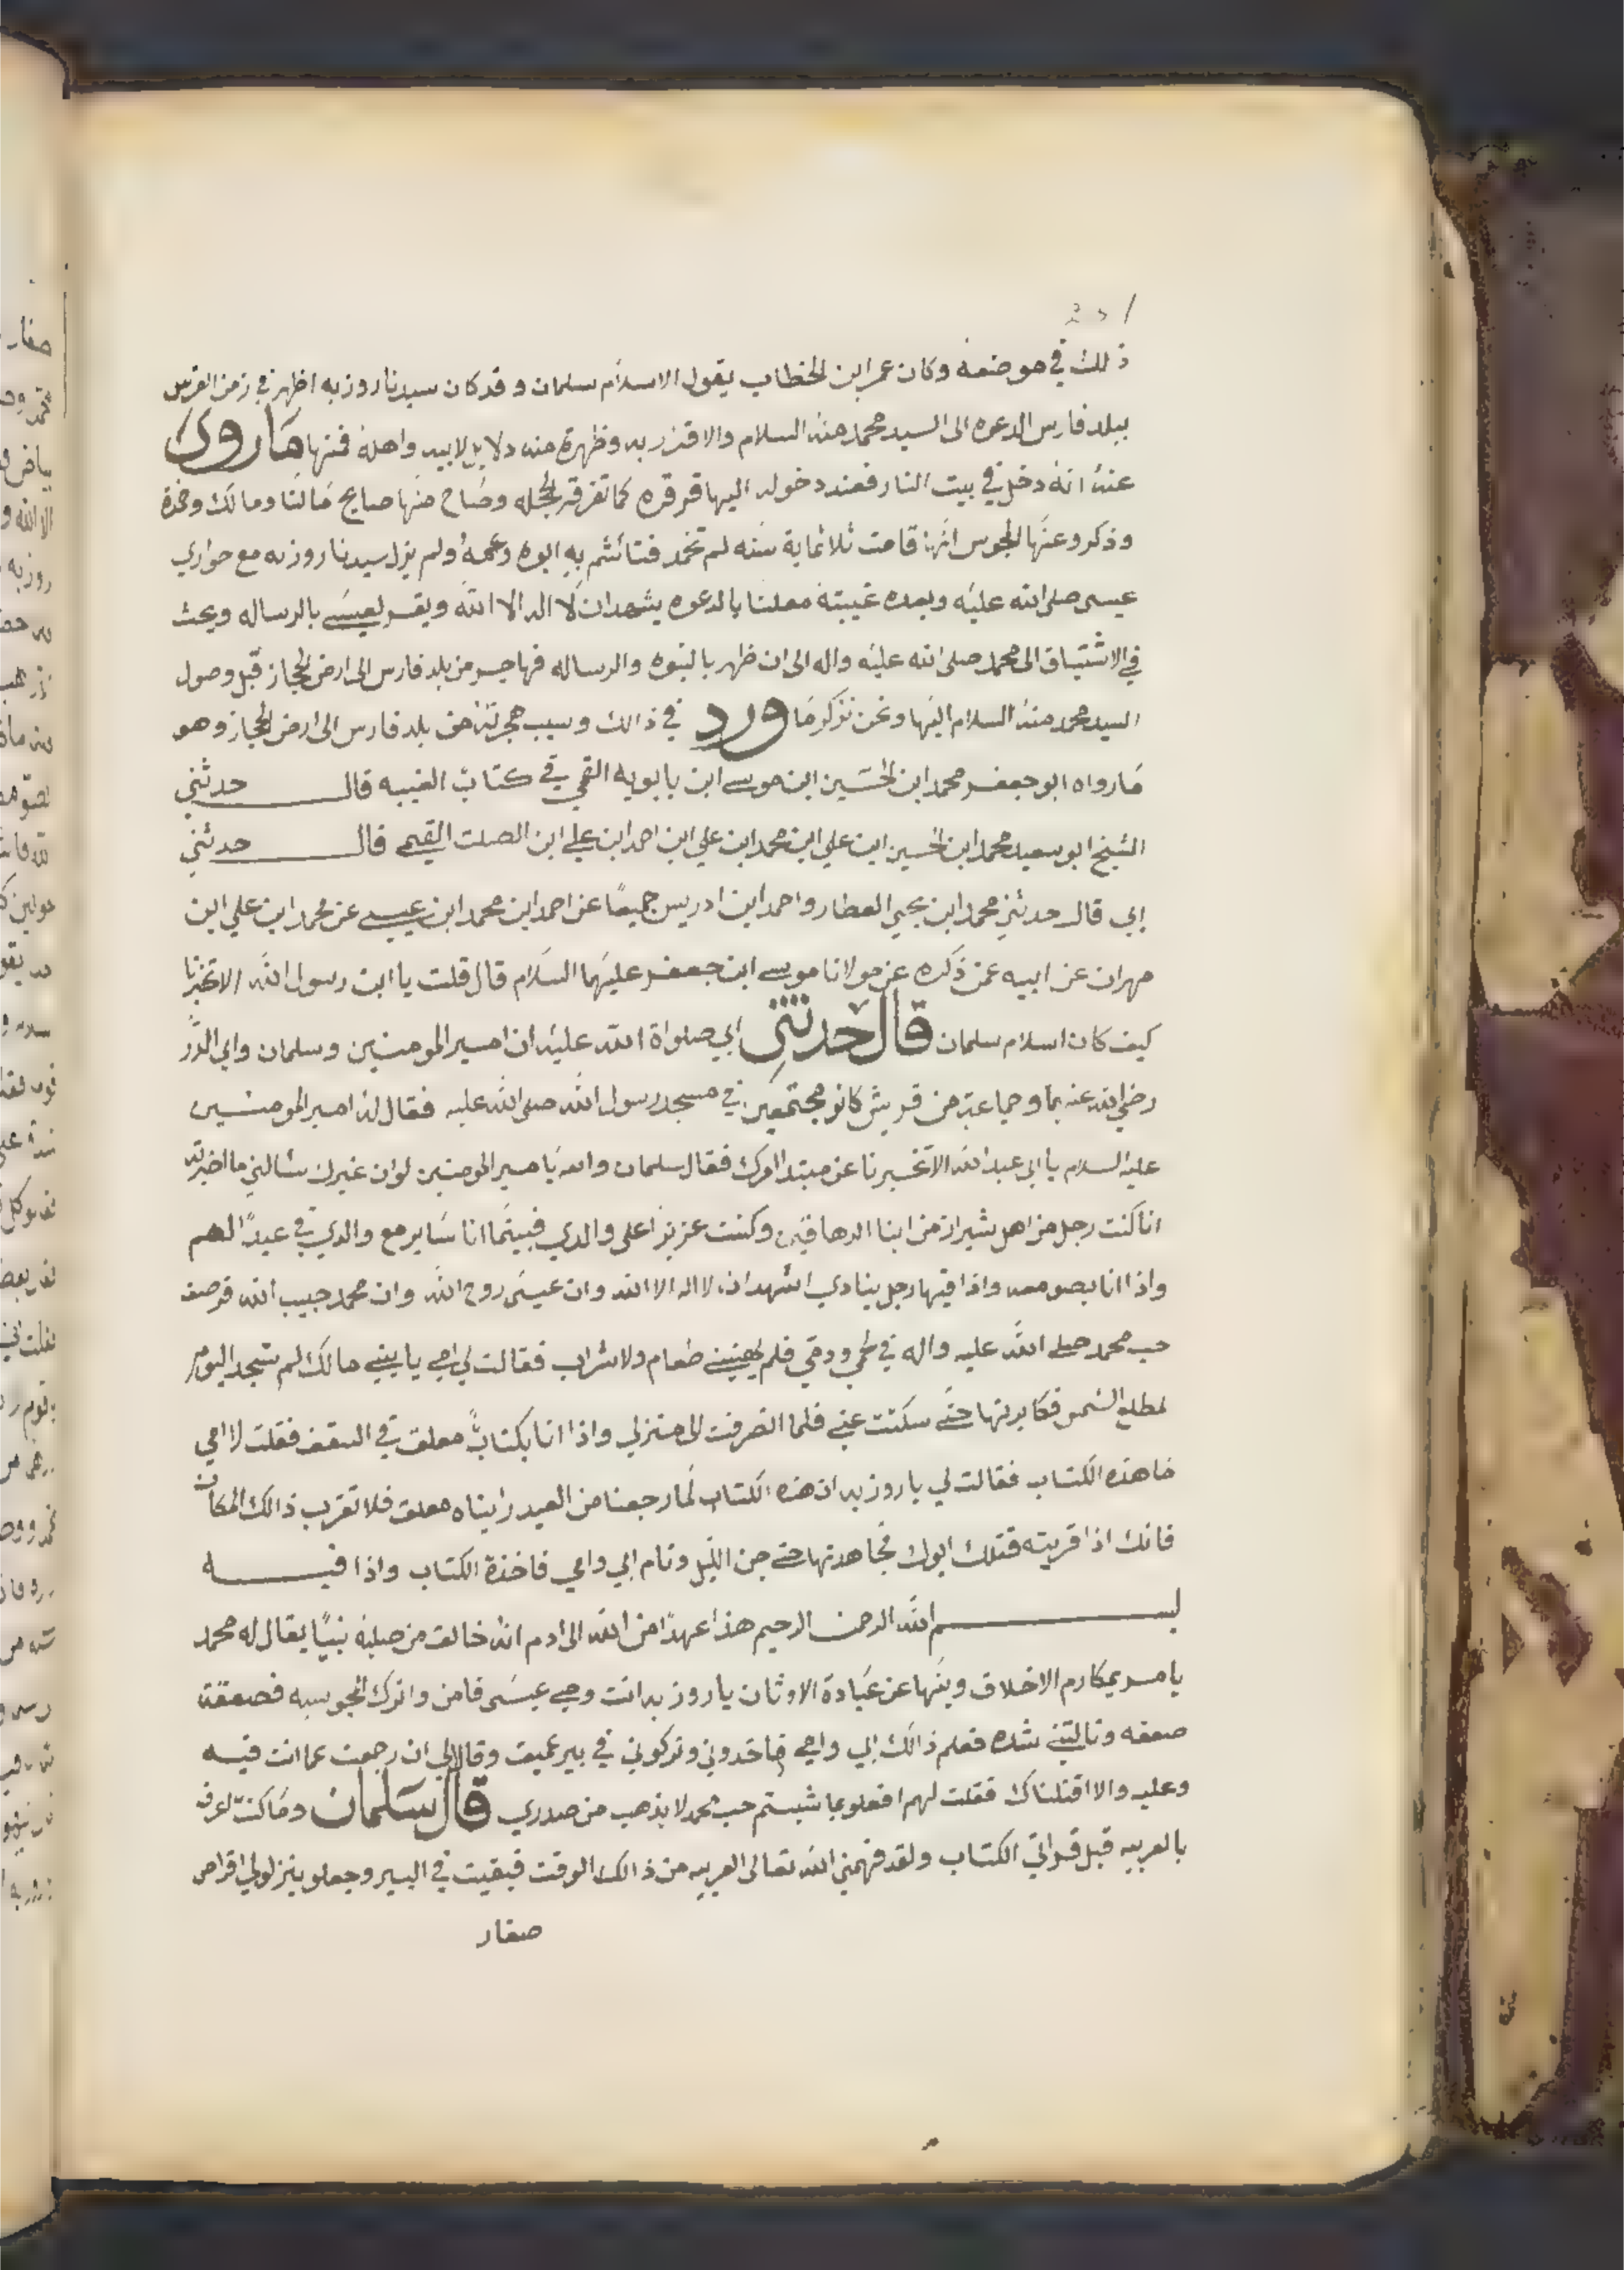 ذلك في موضعه وكان عمر ابن الخطاب يقول الاسلام سلمان وقد كان سيدنا روزبه اظهر في زمن الفرس
ببلد فارس الدعوه الى السيد محمد منه السلام والاقرر به وظهرة منه دلايل لابيه واهله فمنها مَا روى
عنهُ انهُ دخل في بيت النار فعند دخوله اليها قرقره كما تقرقر العجله وصَاح منهَا صايح مَا لنَا ومالك وخمدة
وذكرو عنهَا المجوس انهَا قامت ثلاثماية سَنه لم تخمد فتأشم بهِ ابوه وعمهُ ولم يزل سيدنا روزبه مع حواري
عيسى صلى الله عليَه وبعده غيبته معلنا بالدعوه يشهد ان لا اله الا الله ويقر لعيسَى بالرساله ويحث
في الاشتياق الى محمد صلى الله عليَه واله الى ان ظهر بالنبوه والرساله فهاجر من بلد فارس الى ارض الحجاز قبل وصول
السيد محمد منهُ السلام اليَها ونحن نذكر مَا ورد في ذالك وسبب هجرته من بلد فارس الى ارض الحجاز وهو
مَا رواه ابو جعفر محمد ابن الحسَين ابن موسى ابن بابويه القمي في كتاب الغيبه قال حدثني
الشيخ ابو سعيد محمد ابن الحسين ابن علي ابن محمد ابن علي ابن احمد ابن علي ابن الصلت القمي قال حدثني
ابي قال حدثني محمد ابن يحيي العطار واحمد ابن ادريس جميعًا عن احمد ابن محمد ابن عيسى عن محمد ابن علي ابن
مهران عن ابيه عمن ذكره عن مولانا موسى ابن جعفر عليهَما السلام قال قلت يا ابن رسول الله الا تخبرنا
كيف كان اسلام سلمان قال حدثني ابي صلواة الله عليَه ان امير المومنين وسلمان وابي الذَّر
رضي الله عنهما وجماعة من قريش كانو مجتمعين في مسجد رسول الله صلى الله عليه فقال له امير المومنين
عليه السلام يا ابى عبد الله الا تخبرنا عن مبتدا امرك فقال سلمان والله يَا امير المومنين لو ان غيرك سَالني ما اخبرته
انا كنت رجل من اهل شيراز من ابنا الدهاقين وكنت عزيزًا على والدي فبينَما انا سَاير مع والدي في عيدًا لهم
واذا انا بصومعه واذا فيها رجل ينادي اشهد ان لا اله الا الله وان عيسَى روح الله وان محمد حبيب الله فرصف
حب محمد صلى الله عليه واله في لحمي ودمي فلم يهنيني طعام ولا شراب فقالت لي امي يا بني مالك لم تسجد اليوم
لمطلع الشمس فكابرتها حتى سكتت عني فلما انصرفت الى منزلي واذا انا بكتابً معلق في السقف فقلت لامي
ما هذه الكتاب فقالت لي يا روزبه ان هذه الكتاب لما رجعنا من العيد رايناه معلق فلا تقرب ذالك المكان
فانك اذا قربته قتلك ابوك فجاهدتها حتى جن الليل ونام ابي وامي فاخذة الكتاب واذا فيه
بسم الله الرحمن الرحيم هذا عهدًا من الله الى ادم انه خالق من صلبه نبيًا يقال له محمد
يامر بمكارم الاخلاق وينهَا عن عبَادة الاوثان يا روزبه انت وصي عيسَى فامن واترك المجوسيه فصعقة
صعقه ونالتني شده فعلم ذالك ابي وامي فاخدوني وتركوني في بير عميق وقالا لي ان رجعت عما انت فيه
وعليه والا اقتلناك فقلت لهم افعلو بما شيتم حب محمد لا يذهب من صدري قال سَلمان ومَا كنت اعرف
بالعربيه قبل قراتي الكتاب ولقد فهمني الله تعالى العربيه من ذالك الوقت فبقيت في البير وجعلو ينزلو لي اقراص
صغار